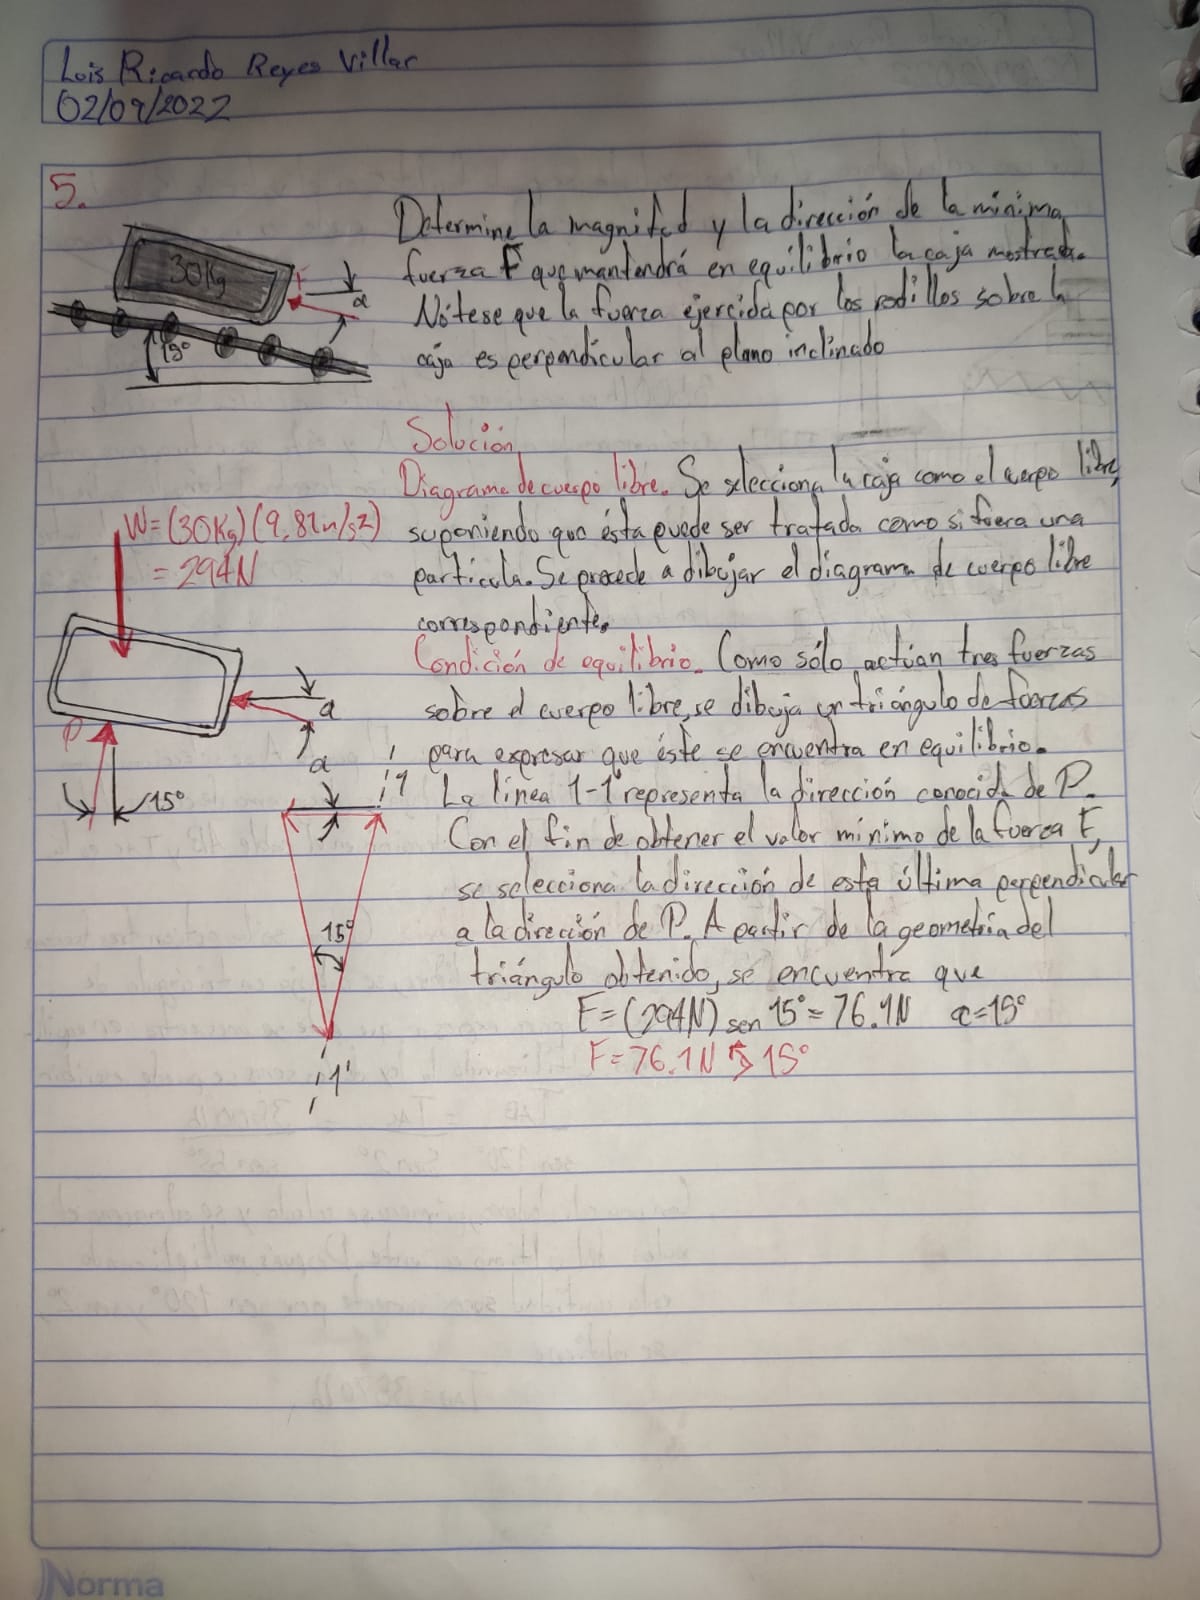 Luis Ricardo Reyes Villar
02/09/2022
5.
Determine la magnitud y la dirección de la mínima
fuerza F que mantendrá en equilibrio la caja mostrada.
Nótese que la fuerza ejercida por los rodillos sobre la
caja es perpendicular al plano inclinado
30Kg
F
a
15°
Solución
Diagrama de cuerpo libre. Se selecciona la caja como el cuerpo libre,
suponiendo que ésta puede ser tratada como si fuera una
partícula. Se procede a dibujar el diagrama de cuerpo libre
correspondiente.
W=(30Kg)(9,81m/s2)
=294N
Condición de equilibrio. Como sólo actúan tres fuerzas
sobre el cuerpo libre, se dibuja un triángulo de fuerzas
para expresar que éste se encuentra en equilibrio.
La línea 1-1' representa la dirección conocida de P.
Con el fin de obtener el valor mínimo de la fuerza F,
se selecciona la dirección de esta última perpendicular
a la dirección de P. A partir de la geometría del
triángulo obtenido, se encuentra que
F=(294N) sen 15°=76.1N a=15°
F=76.1N 15°
a
P
a
15°
1
15°
1'
Norma